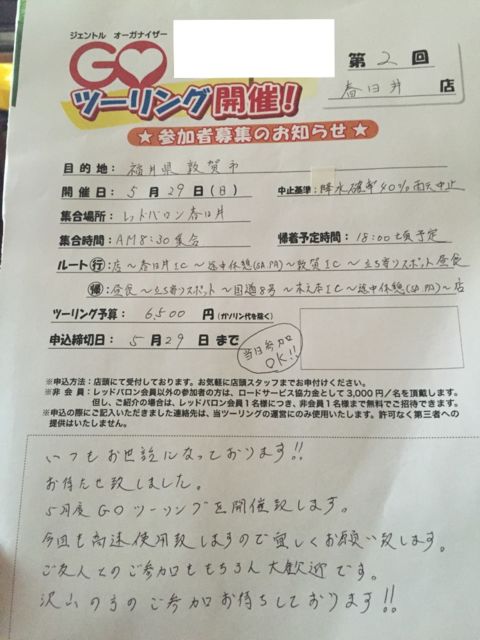 ジェントル オーガナイザー
GO
ツーリング開催!
第 2 回
春日井 店
★ 参加者募集のお知らせ ★
目的地: 福井県 敦賀市
開催日: 5 月 29 日 (日) 中止基準: 降水確率40%雨天中止
集合場所: レッドバロン春日井
集合時間: AM8:30集合 帰着予定時間: 18:00頃予定
ルート (行): 店〜春日井IC〜途中休憩(SA.PA)〜敦賀IC〜立ち寄りスポット昼食
(帰): 昼食〜立ち寄りスポット〜国道8号〜木之本IC〜途中休憩(SA.PA)〜店
ツーリング予算: 6500 円 (ガソリン代を除く)
申込締切日: 5 月 29 日 まで
当日参加
OK!!
※申込方法:店頭にて受付しております。お気軽に店頭スタッフまでお申付けください。
※非 会 員:レッドバロン会員以外の参加者の方は、ロードサービス協力金として3,000円/名を頂戴します。
但し、ご紹介の場合は、レッドバロン会員1名様につき、非会員1名様まで無料でご招待できます。
※申込の際にご記入いただきました連絡先は、当ツーリングの運営にのみ使用いたします。許可なく第三者への
提供はいたしません。
いつもお世話になっております!!
お待たせ致しました。
5月度GOツーリングを開催致します。
今回も高速使用致しますので宜しくお願い致します。
ご友人とのご参加ももちろん大歓迎です。
沢山の方のご参加お待ちしております!!